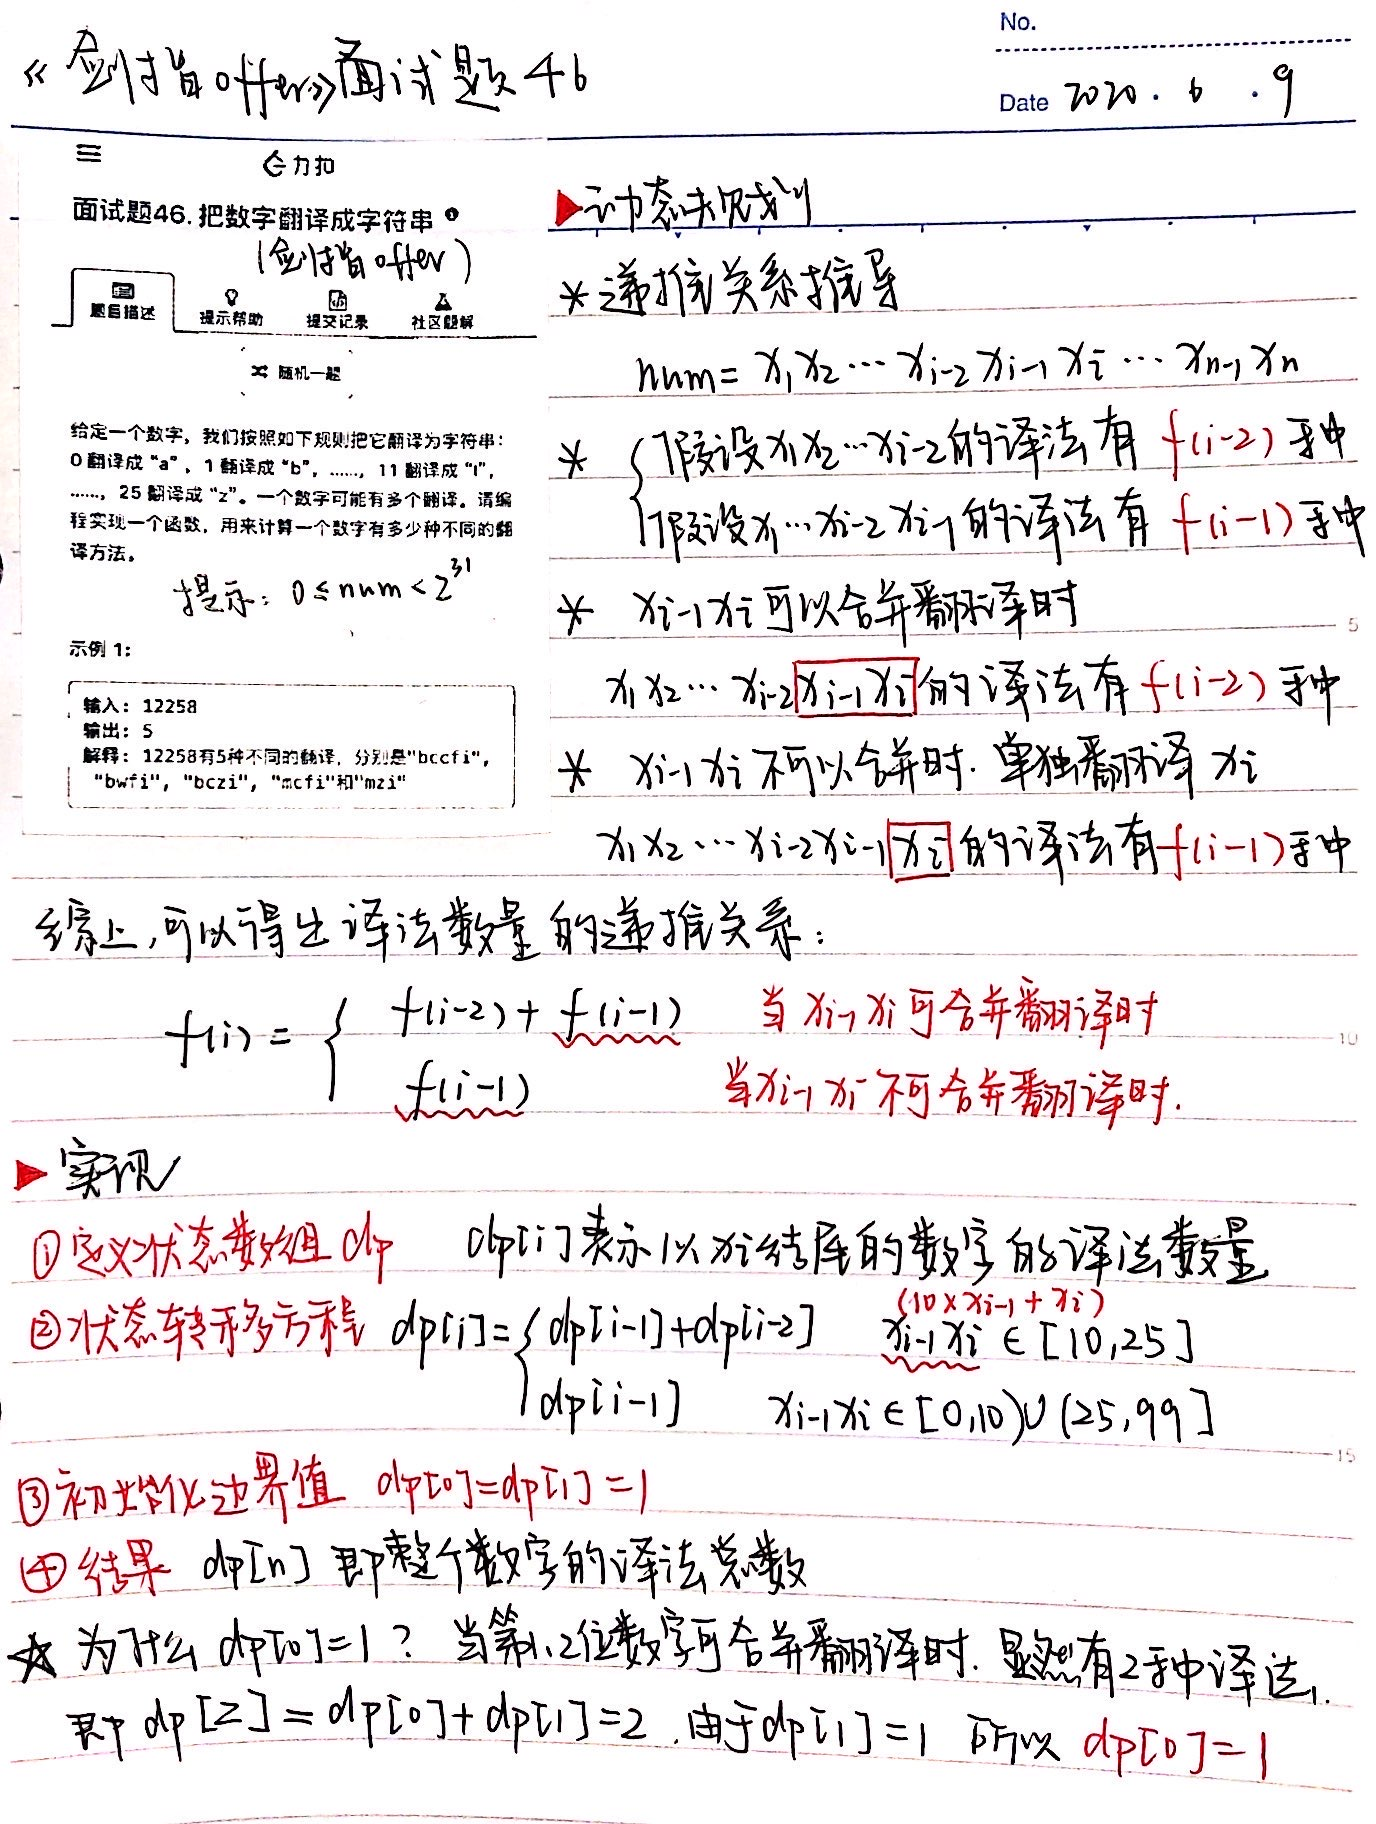 No.
《剑指offer》面试题46
Date 2020.6.9
力扣
面试题46. 把数字翻译成字符串
(剑指offer)
题目描述 提示帮助 提交记录 社区题解
随机一题
给定一个数字，我们按照如下规则把它翻译为字符串：
0 翻译成 “a”，1 翻译成 “b”，……，11 翻译成 “l”，
……，25 翻译成 “z”。一个数字可能有多个翻译。请编
程实现一个函数，用来计算一个数字有多少种不同的翻
译方法。
提示：0≤num<2^31
示例 1:
输入: 12258
输出: 5
解释: 12258有5种不同的翻译，分别是"bccfi",
"bwfi", "bczi", "mcfi"和"mzi"
▶动态规划
*递推关系推导
num= x₁x₂…xi-2 xi-1 xi…xn-1 xn
* { 假设x₁x₂…xi-2的译法有 f(i-2)种
假设x₁…xi-2 xi-1的译法有 f(i-1)种
* xi-1 xi可以合并翻译时
5
x₁x₂…xi-2 xi-1 xi的译法有f(i-2)种
* xi-1 xi不可以合并时.单独翻译 xi
x₁x₂…xi-2xi-1 xi的译法有f(i-1)种
综上,可以得出译法数量的递推关系：
f(i) = { f(i-2)+f(i-1) 当xi-1 xi可合并翻译时
10
f(i-1) 当xi-1 xi不可合并翻译时.
▶实现
①定义状态数组dp dp[i]表示以xi结尾的数字的译法数量
(10×xi-1+xi)
②状态转移方程 dp[i]={ dp[i-1]+dp[i-2] xi-1xi∈[10,25]
dp[i-1] xi-1xi∈[0,10)∪(25,99]
15
③初始化边界值 dp[0]=dp[1]=1
④结果 dp[n] 即整个数字的译法总数
☆为什么 dp[0]=1？当第1.2位数字可合并翻译时.显然有2种译法.
即 dp[2]=dp[0]+dp[1]=2.由于dp[1]=1 所以 dp[0]=1